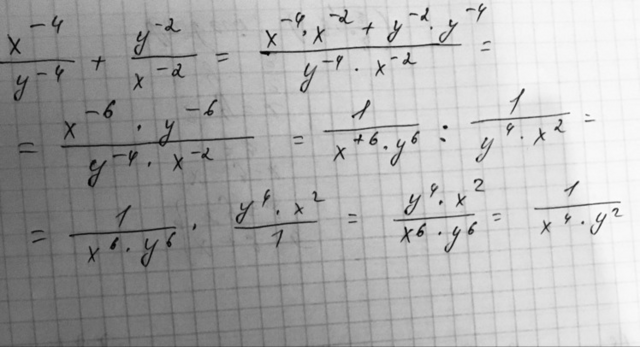 x⁻⁴/y⁻⁴ + y⁻²/x⁻² = (x⁻⁴·x⁻² + y⁻²·y⁻⁴)/(y⁻⁴·x⁻²) =
= (x⁻⁶·y⁻⁶)/(y⁻⁴·x⁻²) = 1/(x⁺⁶·y⁶) : 1/(y⁴·x²) =
= 1/(x⁶·y⁶) · (y⁴·x²)/1 = (y⁴·x²)/(x⁶·y⁶) = 1/(x⁴·y²)